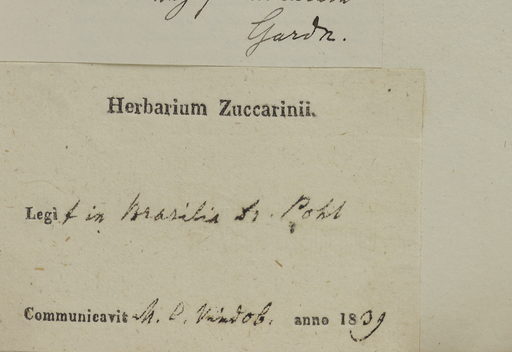 Gardn.
Herbarium Zuccarinii.
Legit in Brasilia Dr. Pohl
Communicavit M. C. Vindob. anno 1839